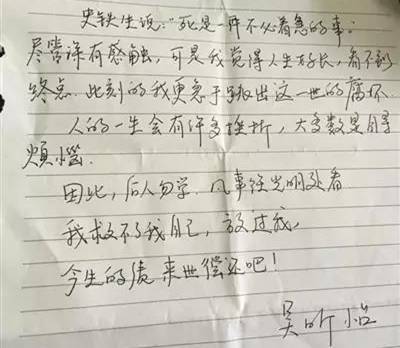 史铁生说："死是一件不必着急的事."
尽管深有感触，可是我觉得人生好长，看不到
终点.此刻的我更急于跳出这一世的腐坏.
人的一生会有许多挫折，大多数是自寻
烦恼.
因此，后人勿学.凡事往光明处看
我救不了我自己，放过我，
今生的债来世偿还吧！
吴昕怡